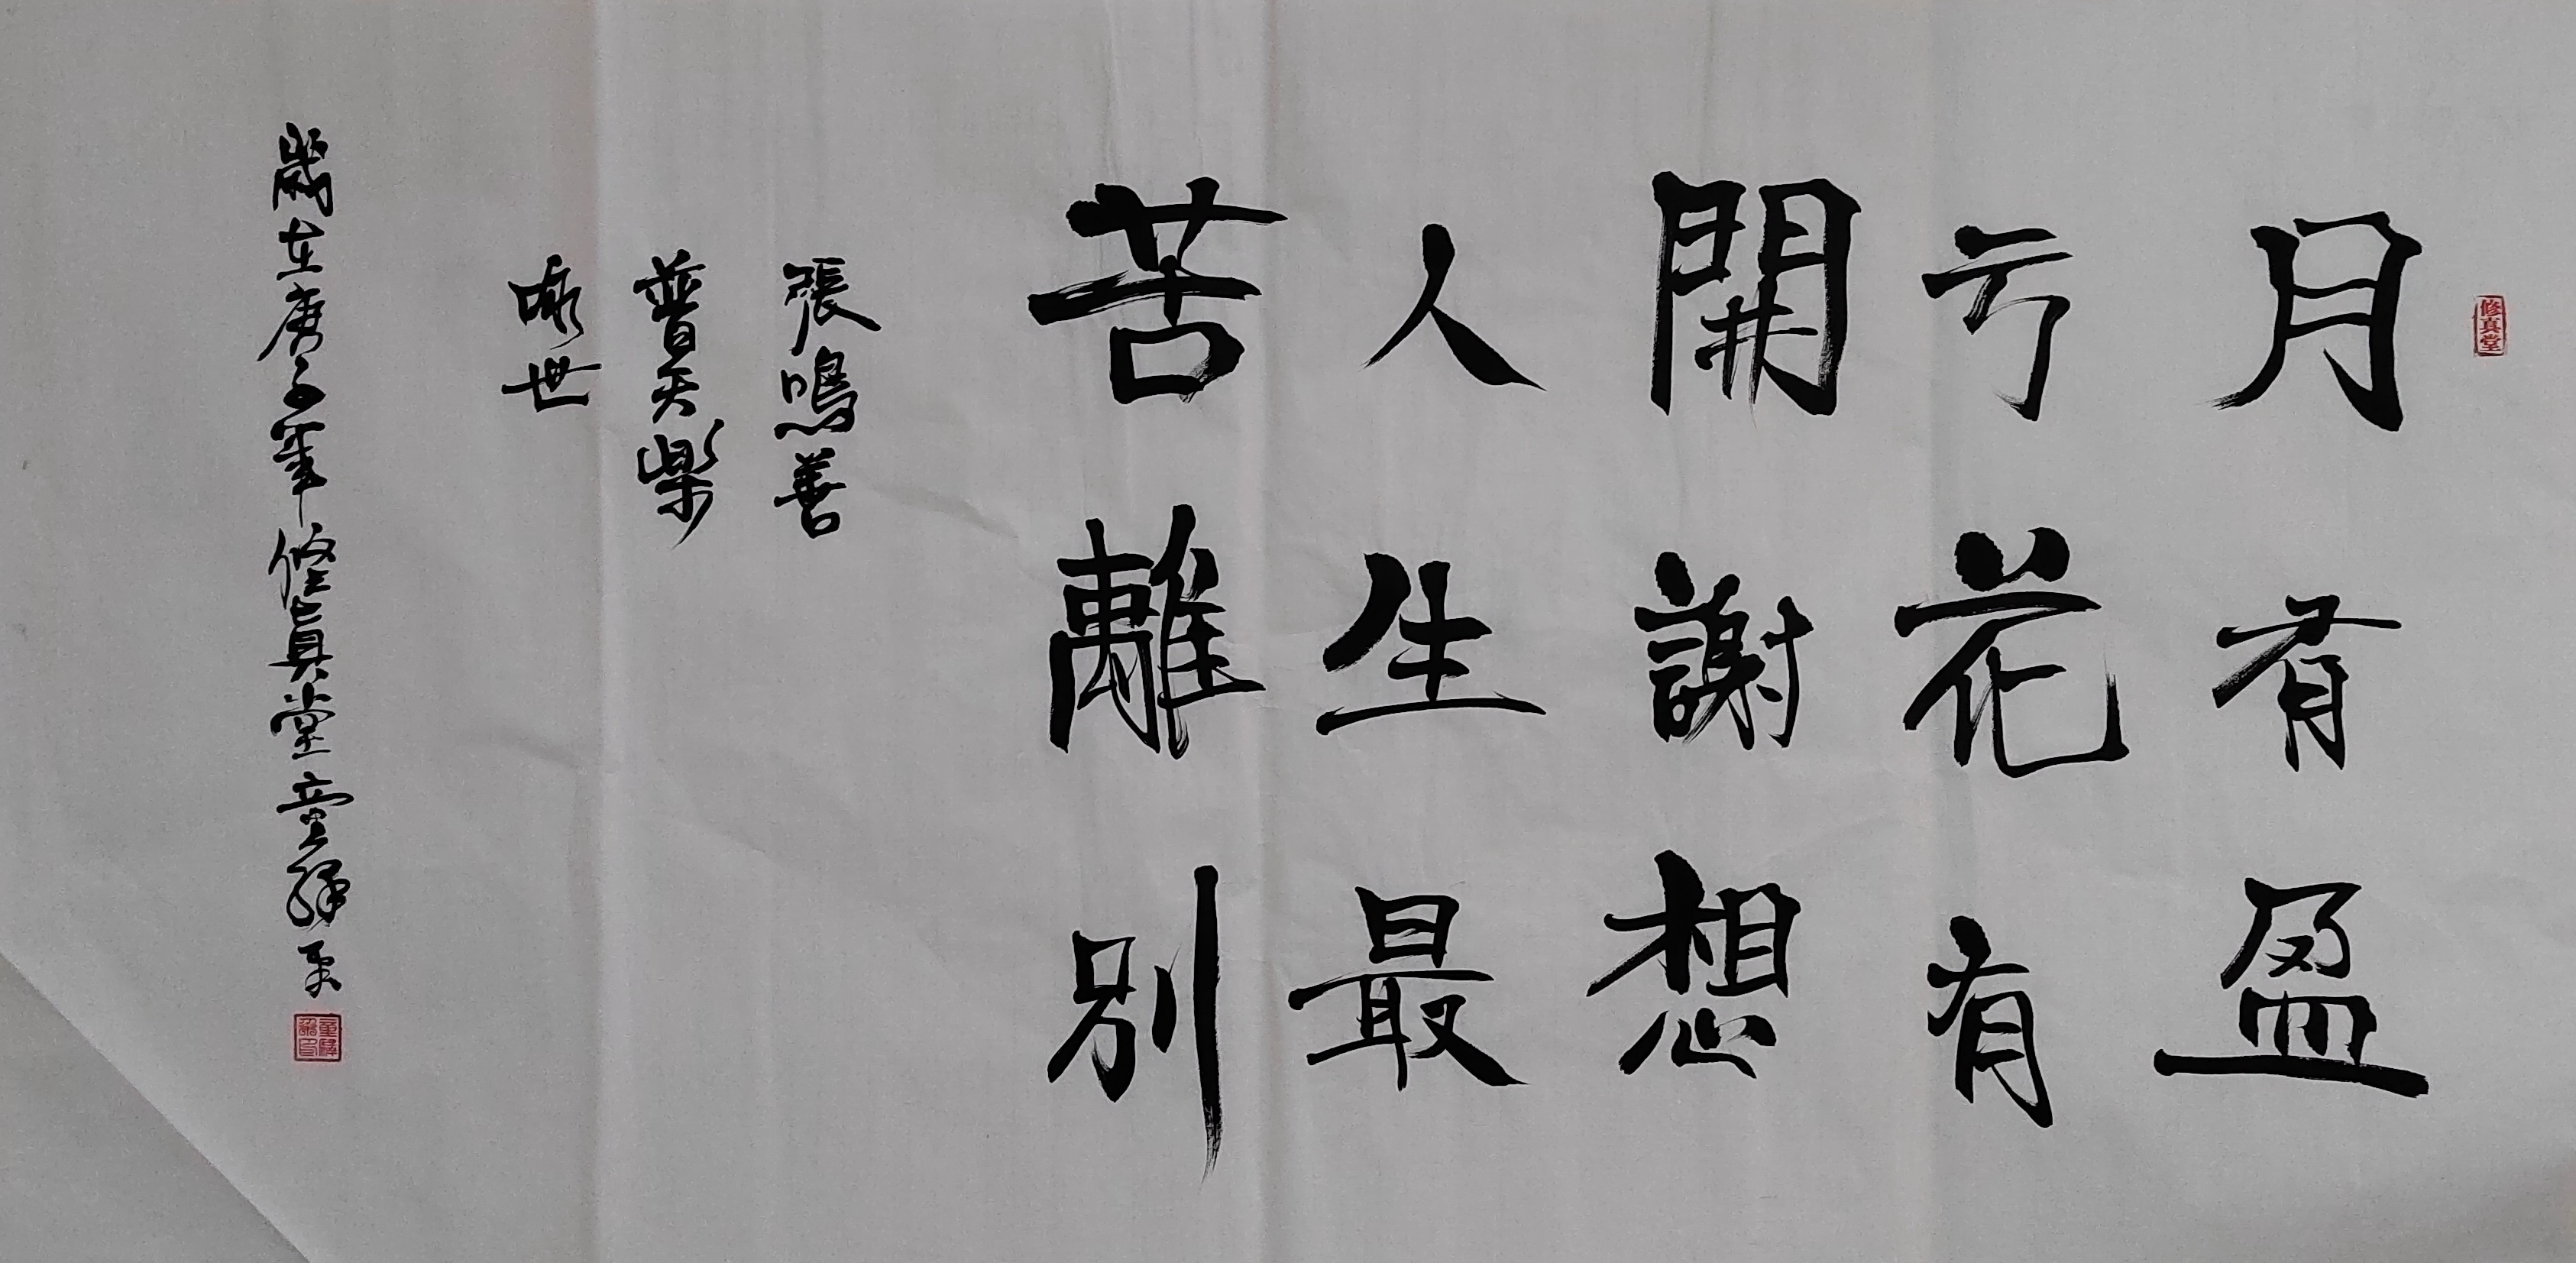 修真堂
月有盈
亏花有
開謝想
人生最
苦離別
張鳴善
普天樂
咏世
歲在庚子年修真堂童